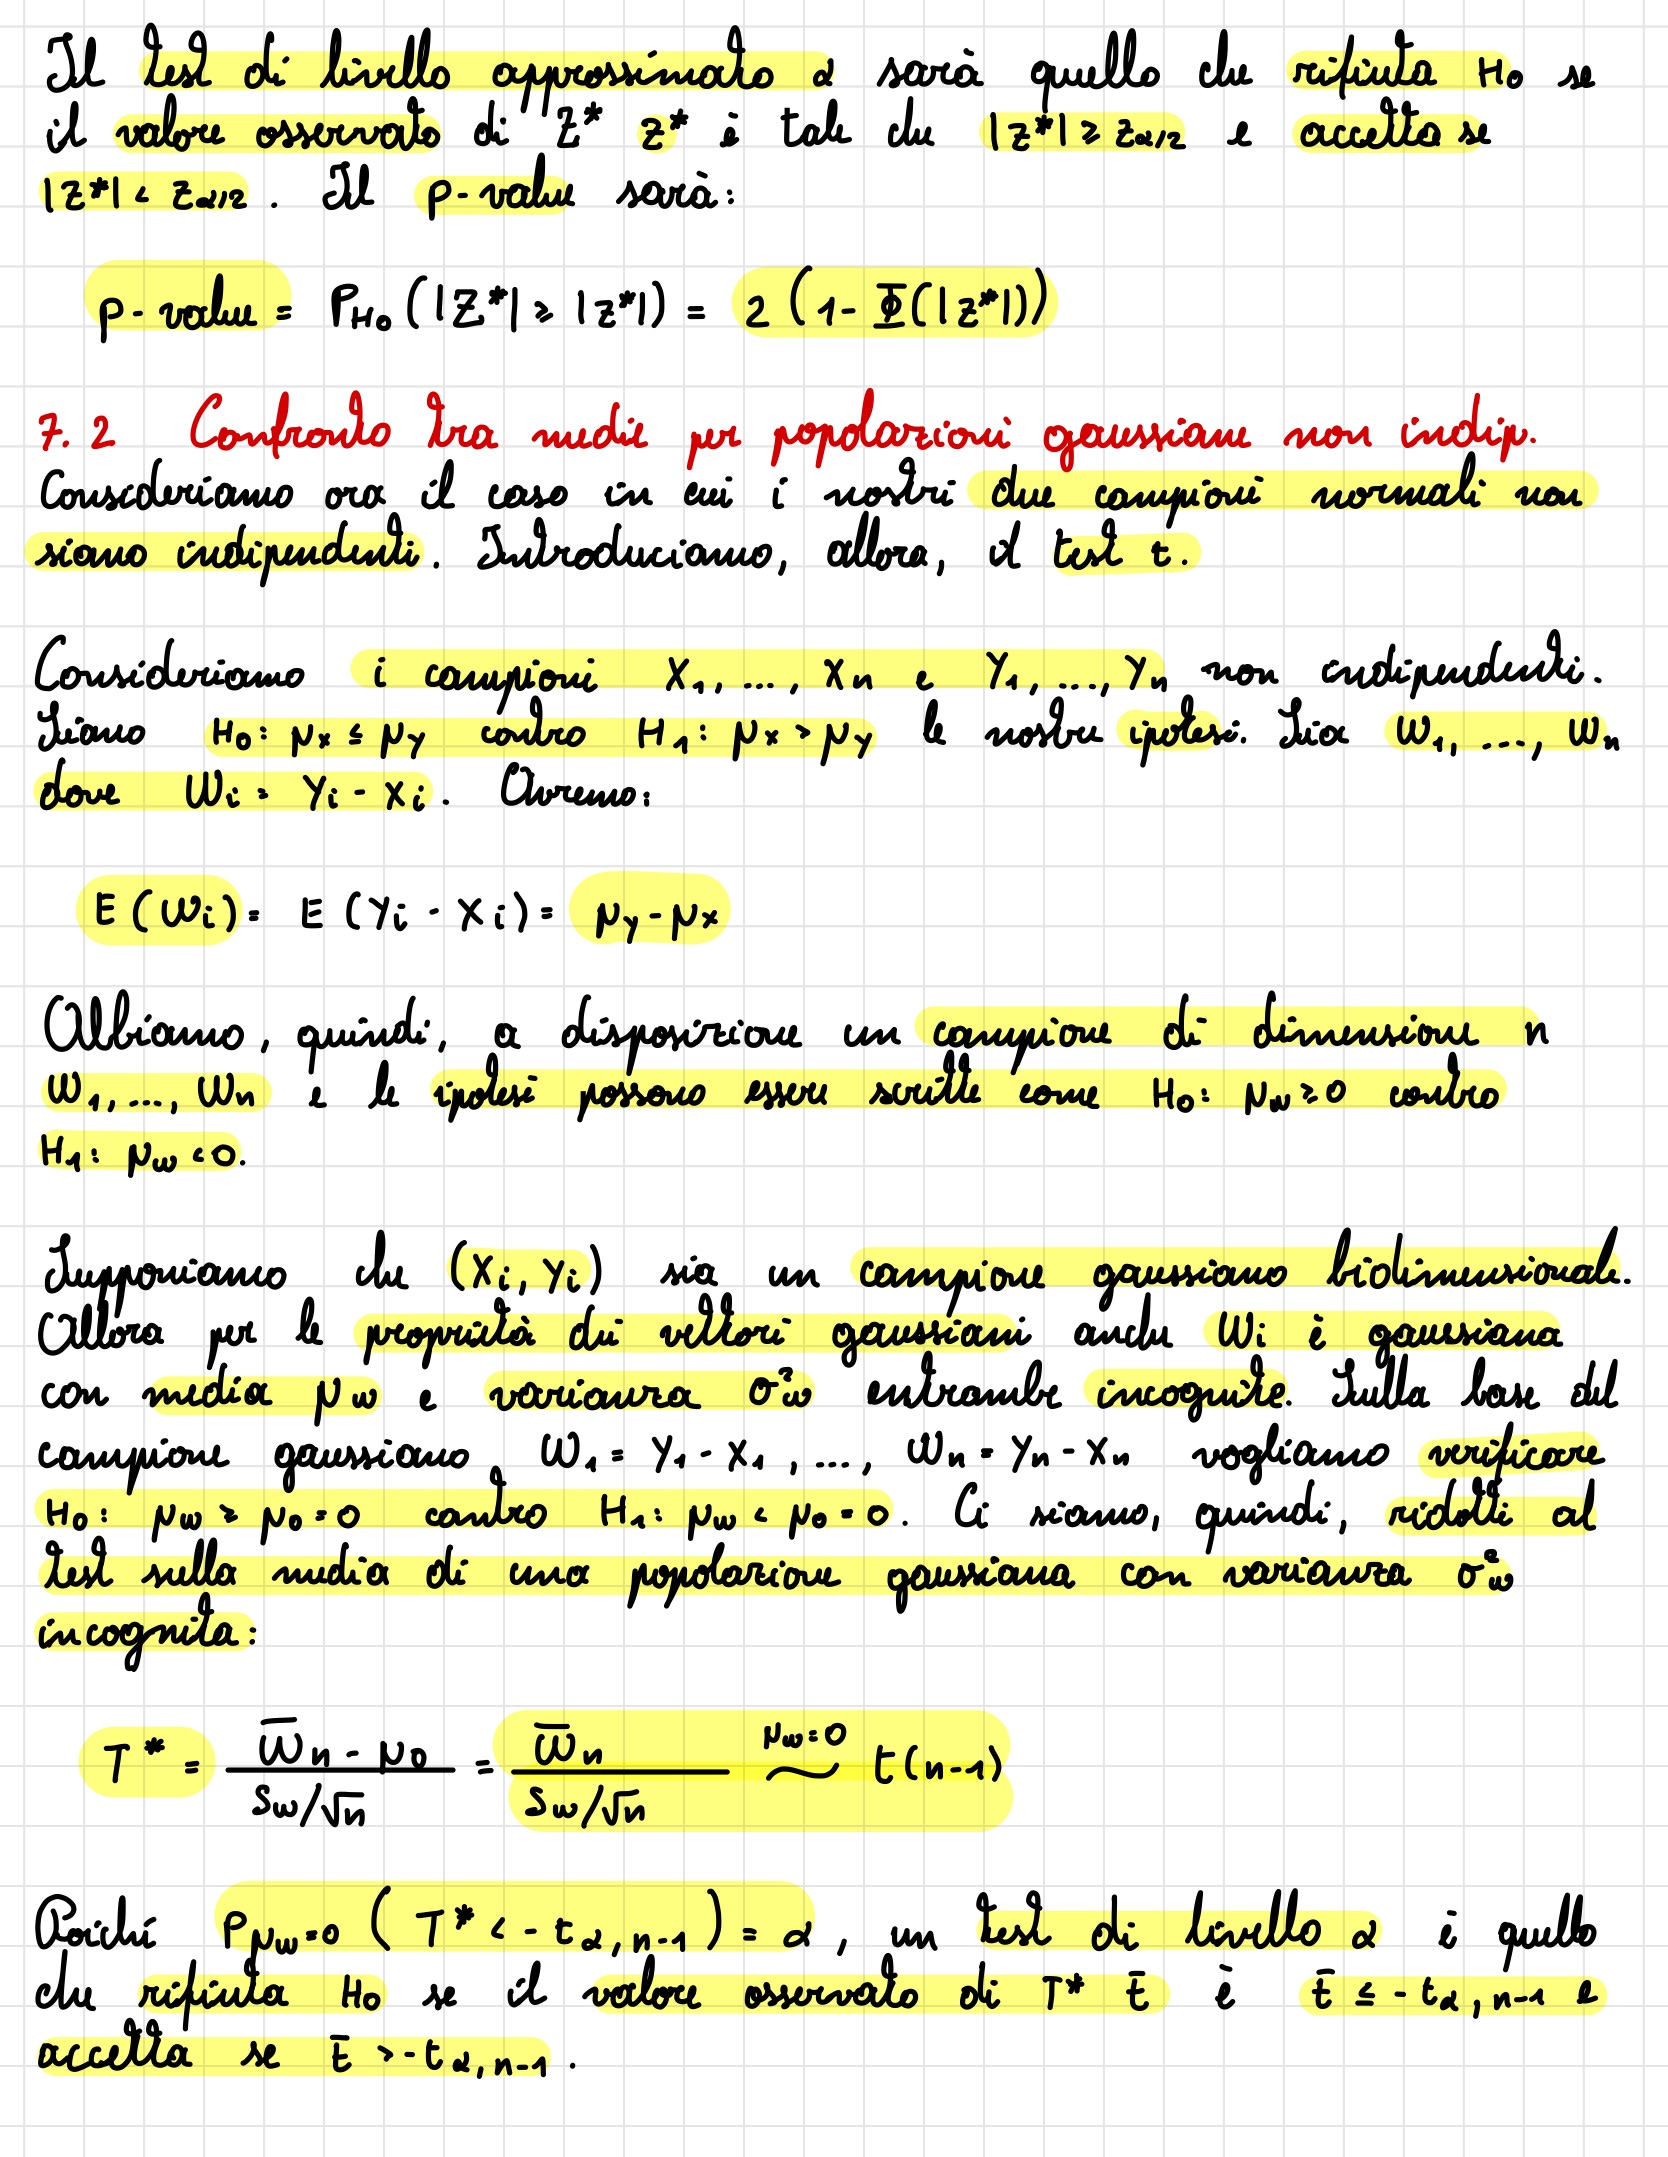 Il test di livello approssimato α sarà quello che rifiuta H₀ se
il valore osservato di Z* z* è tale che |z*| ≥ z_{α/2} e accetta se
|z*| < z_{α/2}. Il p-value sarà:
p-value = P_{H₀}(|Z*| ≥ |z*|) = 2(1-Φ(|z*|))
7.2 Confronto tra medie per popolazioni gaussiane non indip.
Consideriamo ora il caso in cui i nostri due campioni normali non
siano indipendenti. Introduciamo, allora, il test t.
Consideriamo i campioni X₁, ..., Xₙ e Y₁, ..., Yₙ non indipendenti.
Siano H₀: μₓ ≤ μ_y contro H₁: μₓ > μ_y le nostre ipotesi. Sia W₁, ..., Wₙ
dove Wᵢ = Yᵢ - Xᵢ. Avremo:
E(Wᵢ) = E(Yᵢ - Xᵢ) = μ_y - μₓ
Abbiamo, quindi, a disposizione un campione di dimensione n
W₁, ..., Wₙ e le ipotesi possono essere scritte come H₀: μ_w ≥ 0 contro
H₁: μ_w < 0.
Supponiamo che (Xᵢ, Yᵢ) sia un campione gaussiano bidimensionale.
Allora per le proprietà dei vettori gaussiani anche Wᵢ è gaussiana
con media μ_w e varianza σ²_w entrambe incognite. Sulla base del
campione gaussiano W₁ = Y₁ - X₁, ..., Wₙ = Yₙ - Xₙ vogliamo verificare
H₀: μ_w ≥ μ₀ = 0 contro H₁: μ_w < μ₀ = 0. Ci siamo, quindi, ridotti al
test sulla media di una popolazione gaussiana con varianza σ²_w
incognita:
T* = (W̄ₙ - μ₀)/(S_w/√n) = W̄ₙ/(S_w/√n) ~^{μ_w=0} t(n-1)
Poiché P_{μ_w=0}(T* < -t_{α,n-1}) = α, un test di livello α è quello
che rifiuta H₀ se il valore osservato di T* t̄ è t̄ ≤ -t_{α,n-1} e
accetta se t̄ > -t_{α,n-1}.